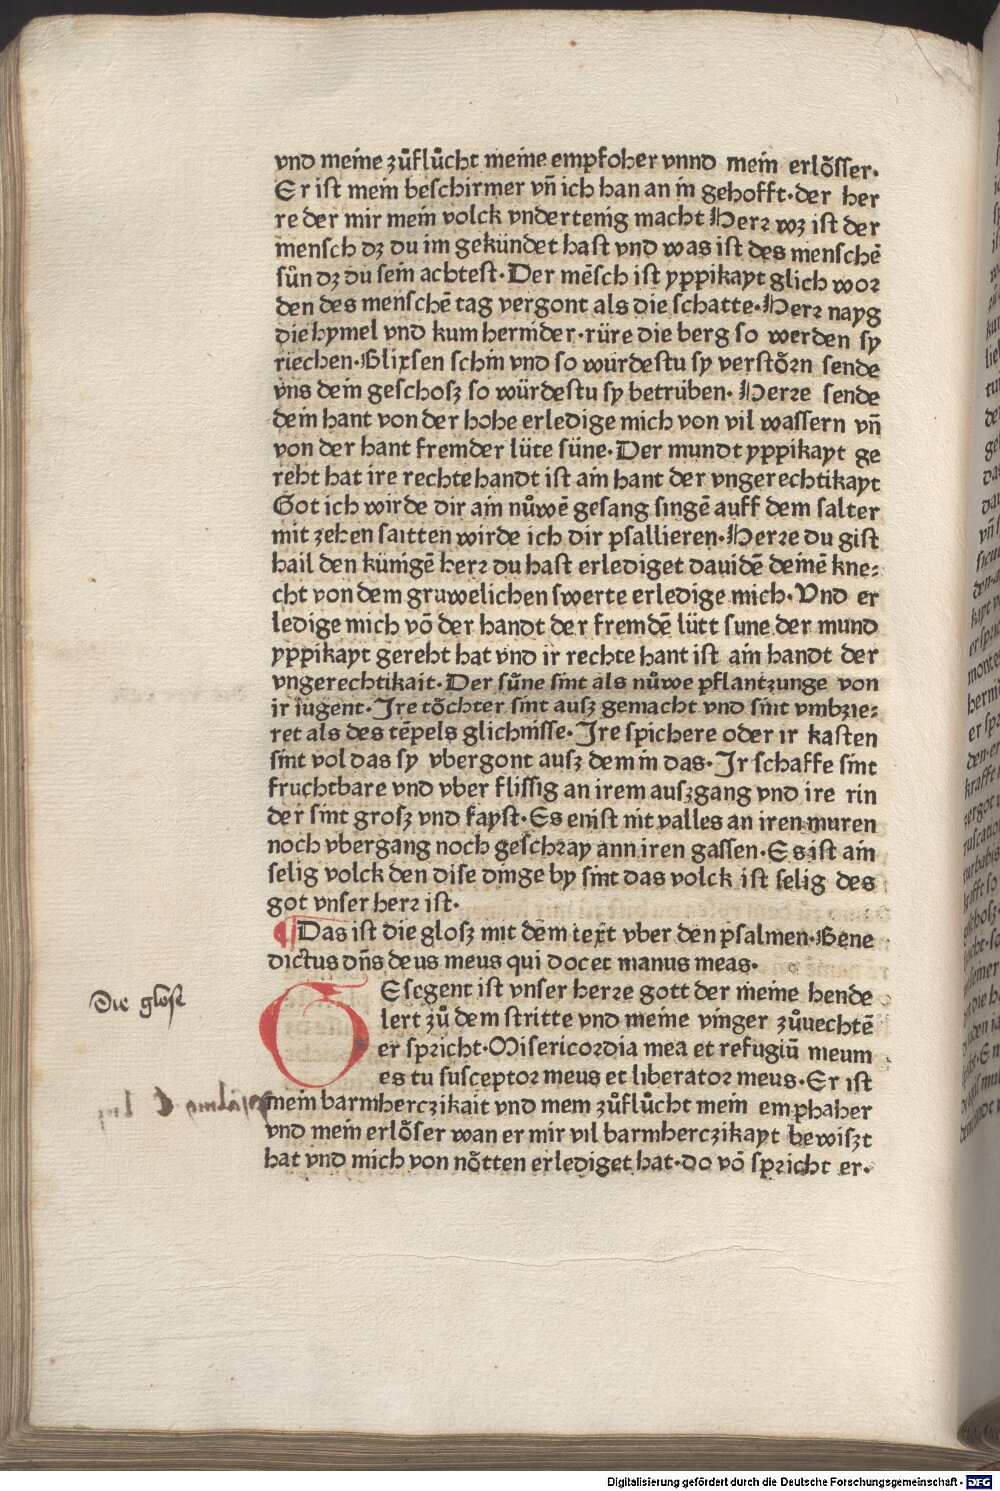 vnd meine zůflůcht meine empfoher vnnd mein erlỏsser·
Er ist mein beschirmer vn̄ ich han an in gehofft·der her
re der mir mein volck vndertenig macht Herꝛ wz ist der
mensch dz du im gekündet hast vnd was ist des menschē
sůn dz du sein achtest·Der mēsch ist yppikayt glich woꝛ
den des menschē tag vergont als die schatte·Herꝛ nayg
die hymel vnd kum hernider·rüre die berg so werden sy
riechen·Blixsen schin vnd so würdestu sy verstỏrn sende
vns dein geschosz so würdestu sy betrüben· Herꝛe sende
dein hant von der hohe erledige mich von vil wassern vn̄
von der hant fremder lüte süne·Der mundt yppikayt ge
reht hat ire rechte handt ist ain hant der vngerechtikayt
Got ich wirde dir ain nůwē gesang singē auff dem salter
mit zehen saitten wirde ich dir psallieren·Herꝛe du gist
hail den künigē herꝛ du hast erlediget dauidē deinē kne⸗
cht von dem gruwelichen swerte erledige mich·Vnd er
ledige mich vō der handt der fremdē lütt sune der mund
yppikayt gereht hat vnd ir rechte hant ist ain handt der
vngerechtikait·Der sůne sint als nůwe pflantzunge von
ir iugent·Jre tỏchter sint ausz gemacht vnd sint vmbzie⸗
ret als des tēpels glichnisse·Jre spichere oder ir kasten
sint vol das sy vbergont ausz dem in das·Jr schaffe sint
fruchtbare vnd vber flissig an irem auszgang vnd ire rin
der sint grosz vnd fayst·Es enist nit valles an iren muren
noch vbergang noch geschꝛay ann iren gassen·Es ist ain
selig volck den dise dinge by sint das volck ist selig des
got vnser herꝛ ist·
¶Das ist die glosz mit dem text vber den psalmen·Bene
dictus dn̄s deus meus qui docet manus meas·
Die glosz
GEsegent ist vnser herꝛe gott der meine hende
lert zů dem stritte vnd meine vinger zůuechtē
er spꝛicht·Misericoꝛdia mea et refugiū meum
es tu susceptoꝛ meus et liberatoꝛ meus·Er ist
mein barmherczikait vnd mein zůflůcht mein emphaher
vnd mein erlỏser wan er mir vil barmherczikayt bewiszt
hat vnd mich von nỏtten erlediget hat·do vō spꝛicht er·
Digitalisierung gefördert durch die Deutsche Forschungsgemeinschaft - DFG